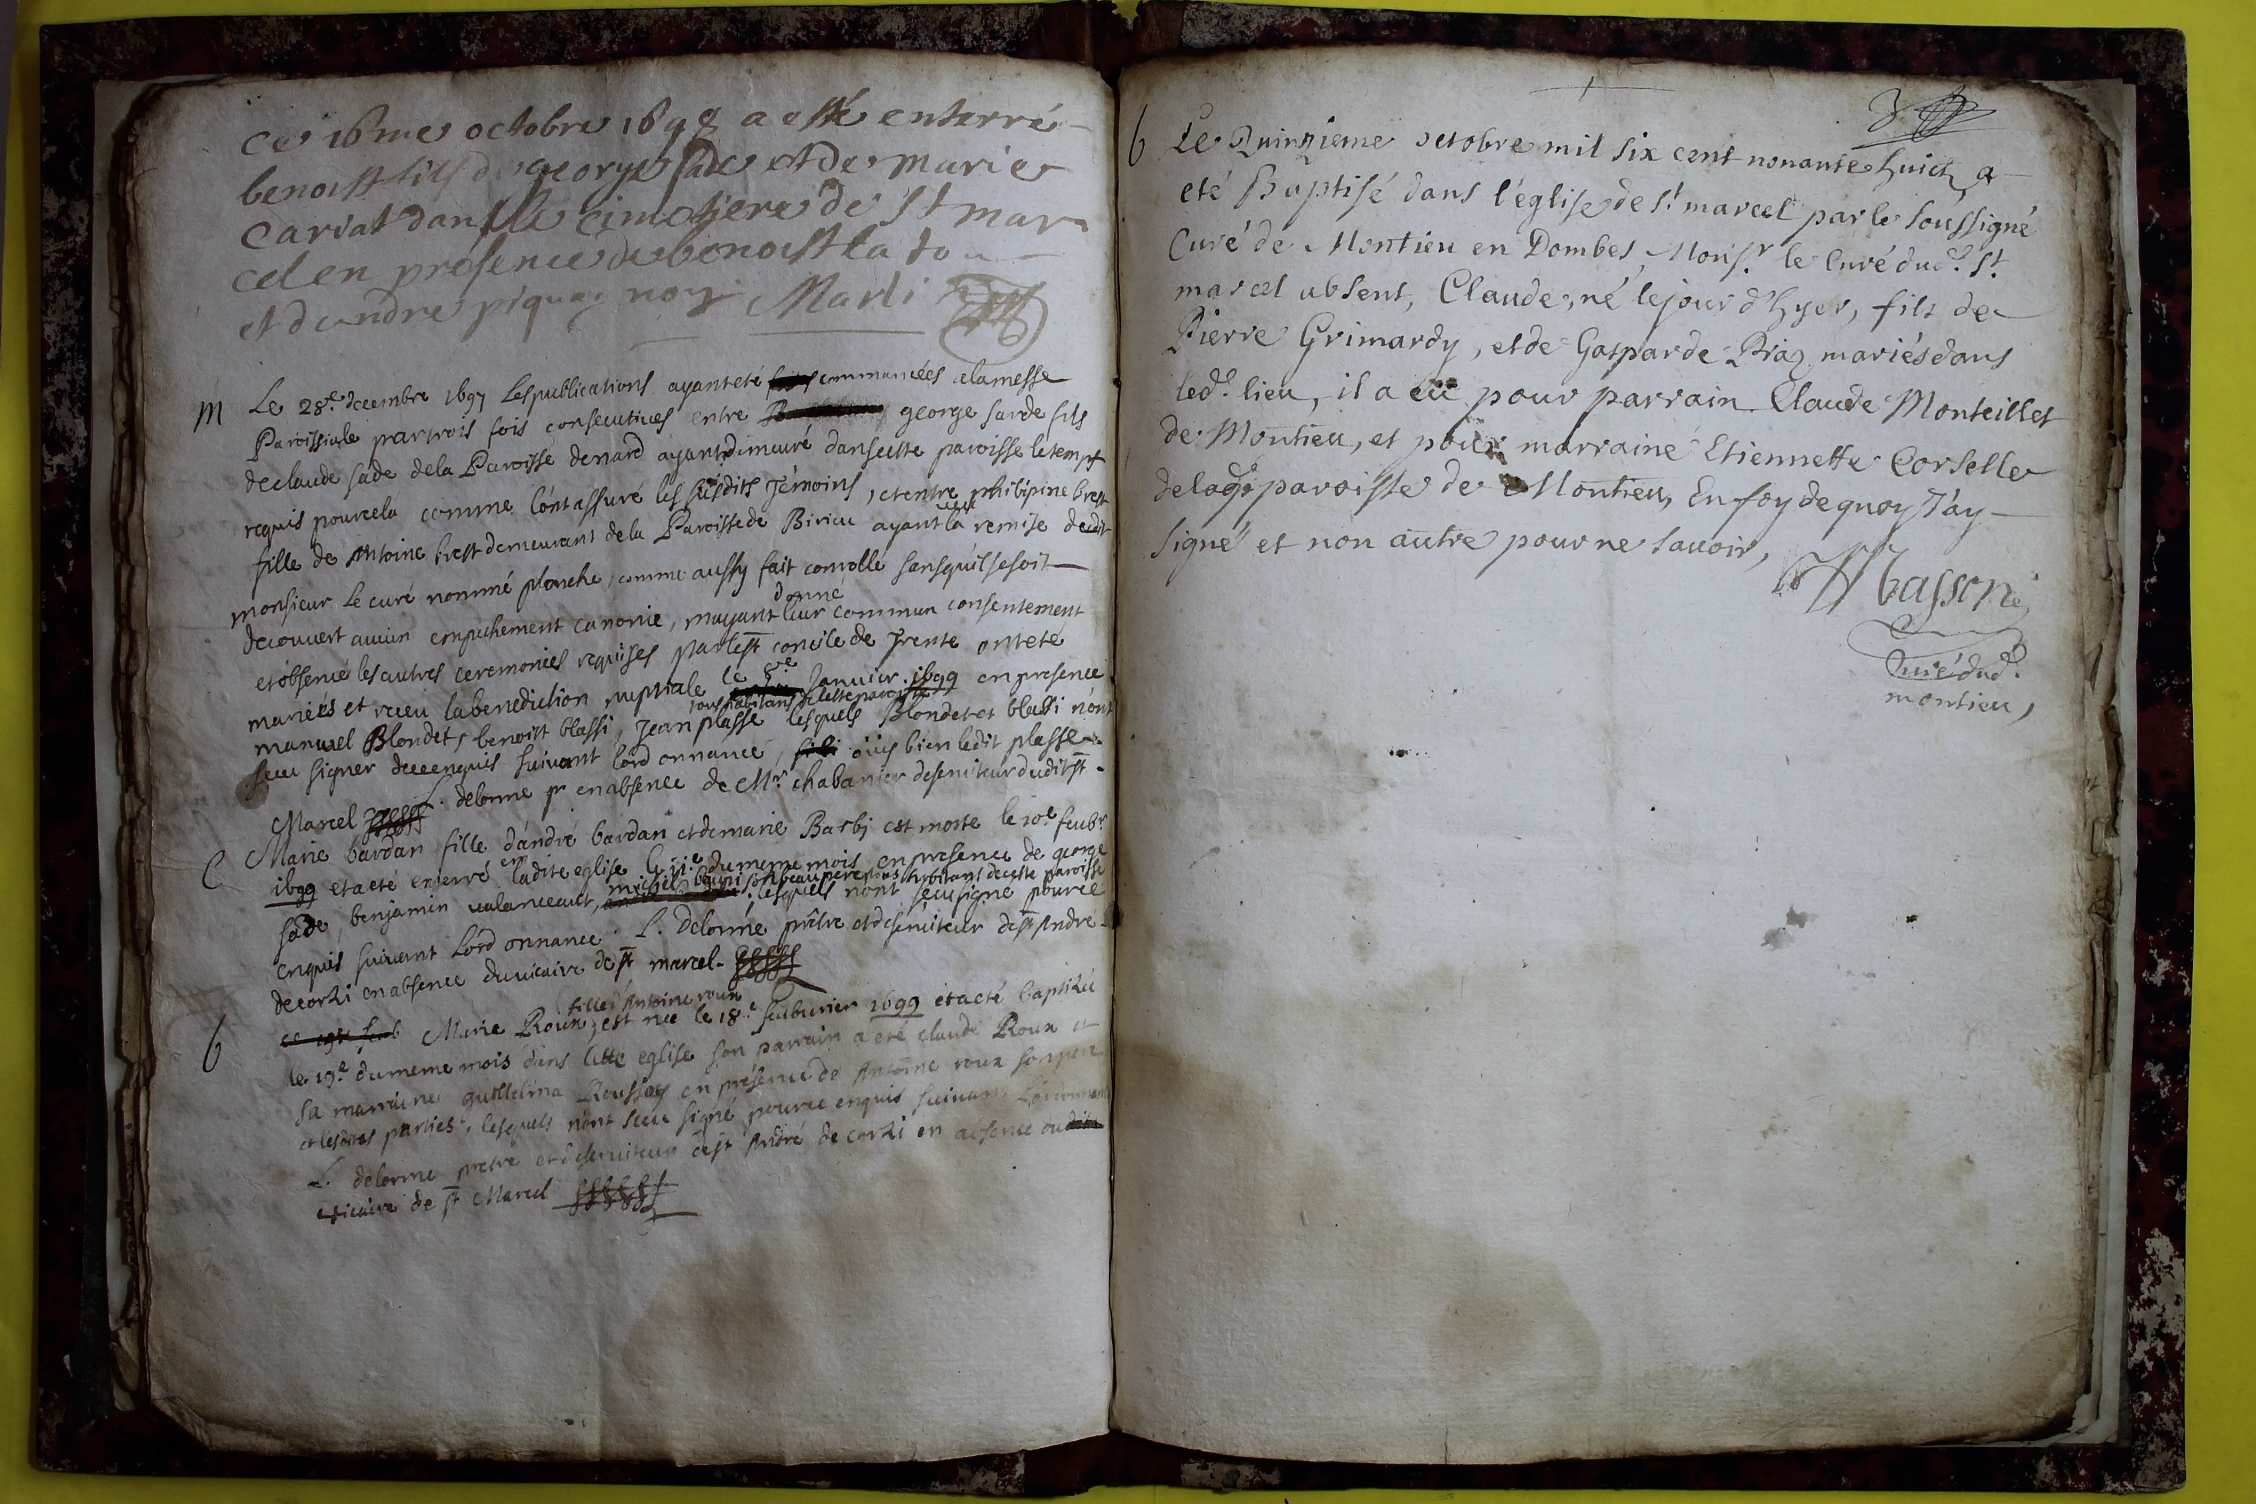 ce 16me octobre 1698 a esté enterré
benoist fils de george sade et de marie
cariat dans le cimetiere de st mar
cel en présence de benoist la
et dandre Marli
M
Le 28e. decembre 1697 Les publications ayant eté commancées a la messe
Paroissiale par trois fois consecutives entre george sarde fils
de claude sade de la Paroisse de nard ayant demeuré dans cette paroisse le temps
requis pour cela comme l'ont assuré les susdits Témoins, et entre philipine brest
fille de Antoine brest demeurant de la Paroisse de Birieu ayant veu la remise dudit
monsieur Le curé nommé planche, comme aussy fait controlle sans qu'il se soit
decouvert aucun empechement canonic, mayant donné leur commun consentement
et observé les autres ceremonies requises par le st concile de Trente ont eté
mariés et receu la benediction nuptiale le Janvier. 1699 en presence
manuel Blondet, benoist blassi, Jean plasse tous habitans de cette paroisse lesquels Blondet et blassi n'ont
sceu signer de ce enquis suivant l'ordonnance, ouy bien ledit plasse
Marcel L. delorme pr en absence de Mr. chabanier deserviteur dudit st
C
Marie bardan fille d'andré bardan et de marie Barbj est morte le 10e. feubr
1699 et a eté enterré en ladite eglise le 11e du meme mois en presence de george
sade, benjamin valanceaut, michel son beau pere tous habitans de cette paroisse lesquels n'ont sceu signé pour ce
enquis suivant L'ordonnance. L. Delorme prêtre et deserviteur de st Andre
de corzi en absence du vicaire de st marcel.
6
Marie Roux, fille d'Antoine roux est née le 18.e feubvrier 1699 et a eté baptizée
le 19.e du meme mois dans cette eglise son parrain a eté claude Roux et
sa marraine guillelma Roussey en présence de Antoine roux son pere
et lesdites parties, lesquels n'ont sceu signé pour ce enquis suivant L'ordonnance
L. delorme pretre et deserviteur de st André de corzi en absence du
vicaire de st Marcel
6
Le Quinzieme octobre mil six cent nonante huict, a
eté Baptisé dans l'église de St marcel par le soussigné
Curé de Montieu en Dombes Monsr. le Curé dud. St.
marcel absent, Claude, né le jour d'hyer, fils de
Pierre Grimardy, et de Gasparde Briaz mariés dans
led. lieu, il a eu pour parrain Claude Monteillet
de Montieu, et pour marraine Etiennette Corselle
de lad. paroisse de Montieu, En foy de quoy J'ay
signé et non autre pour ne savoir,
basson
Curé dud.
montieu,